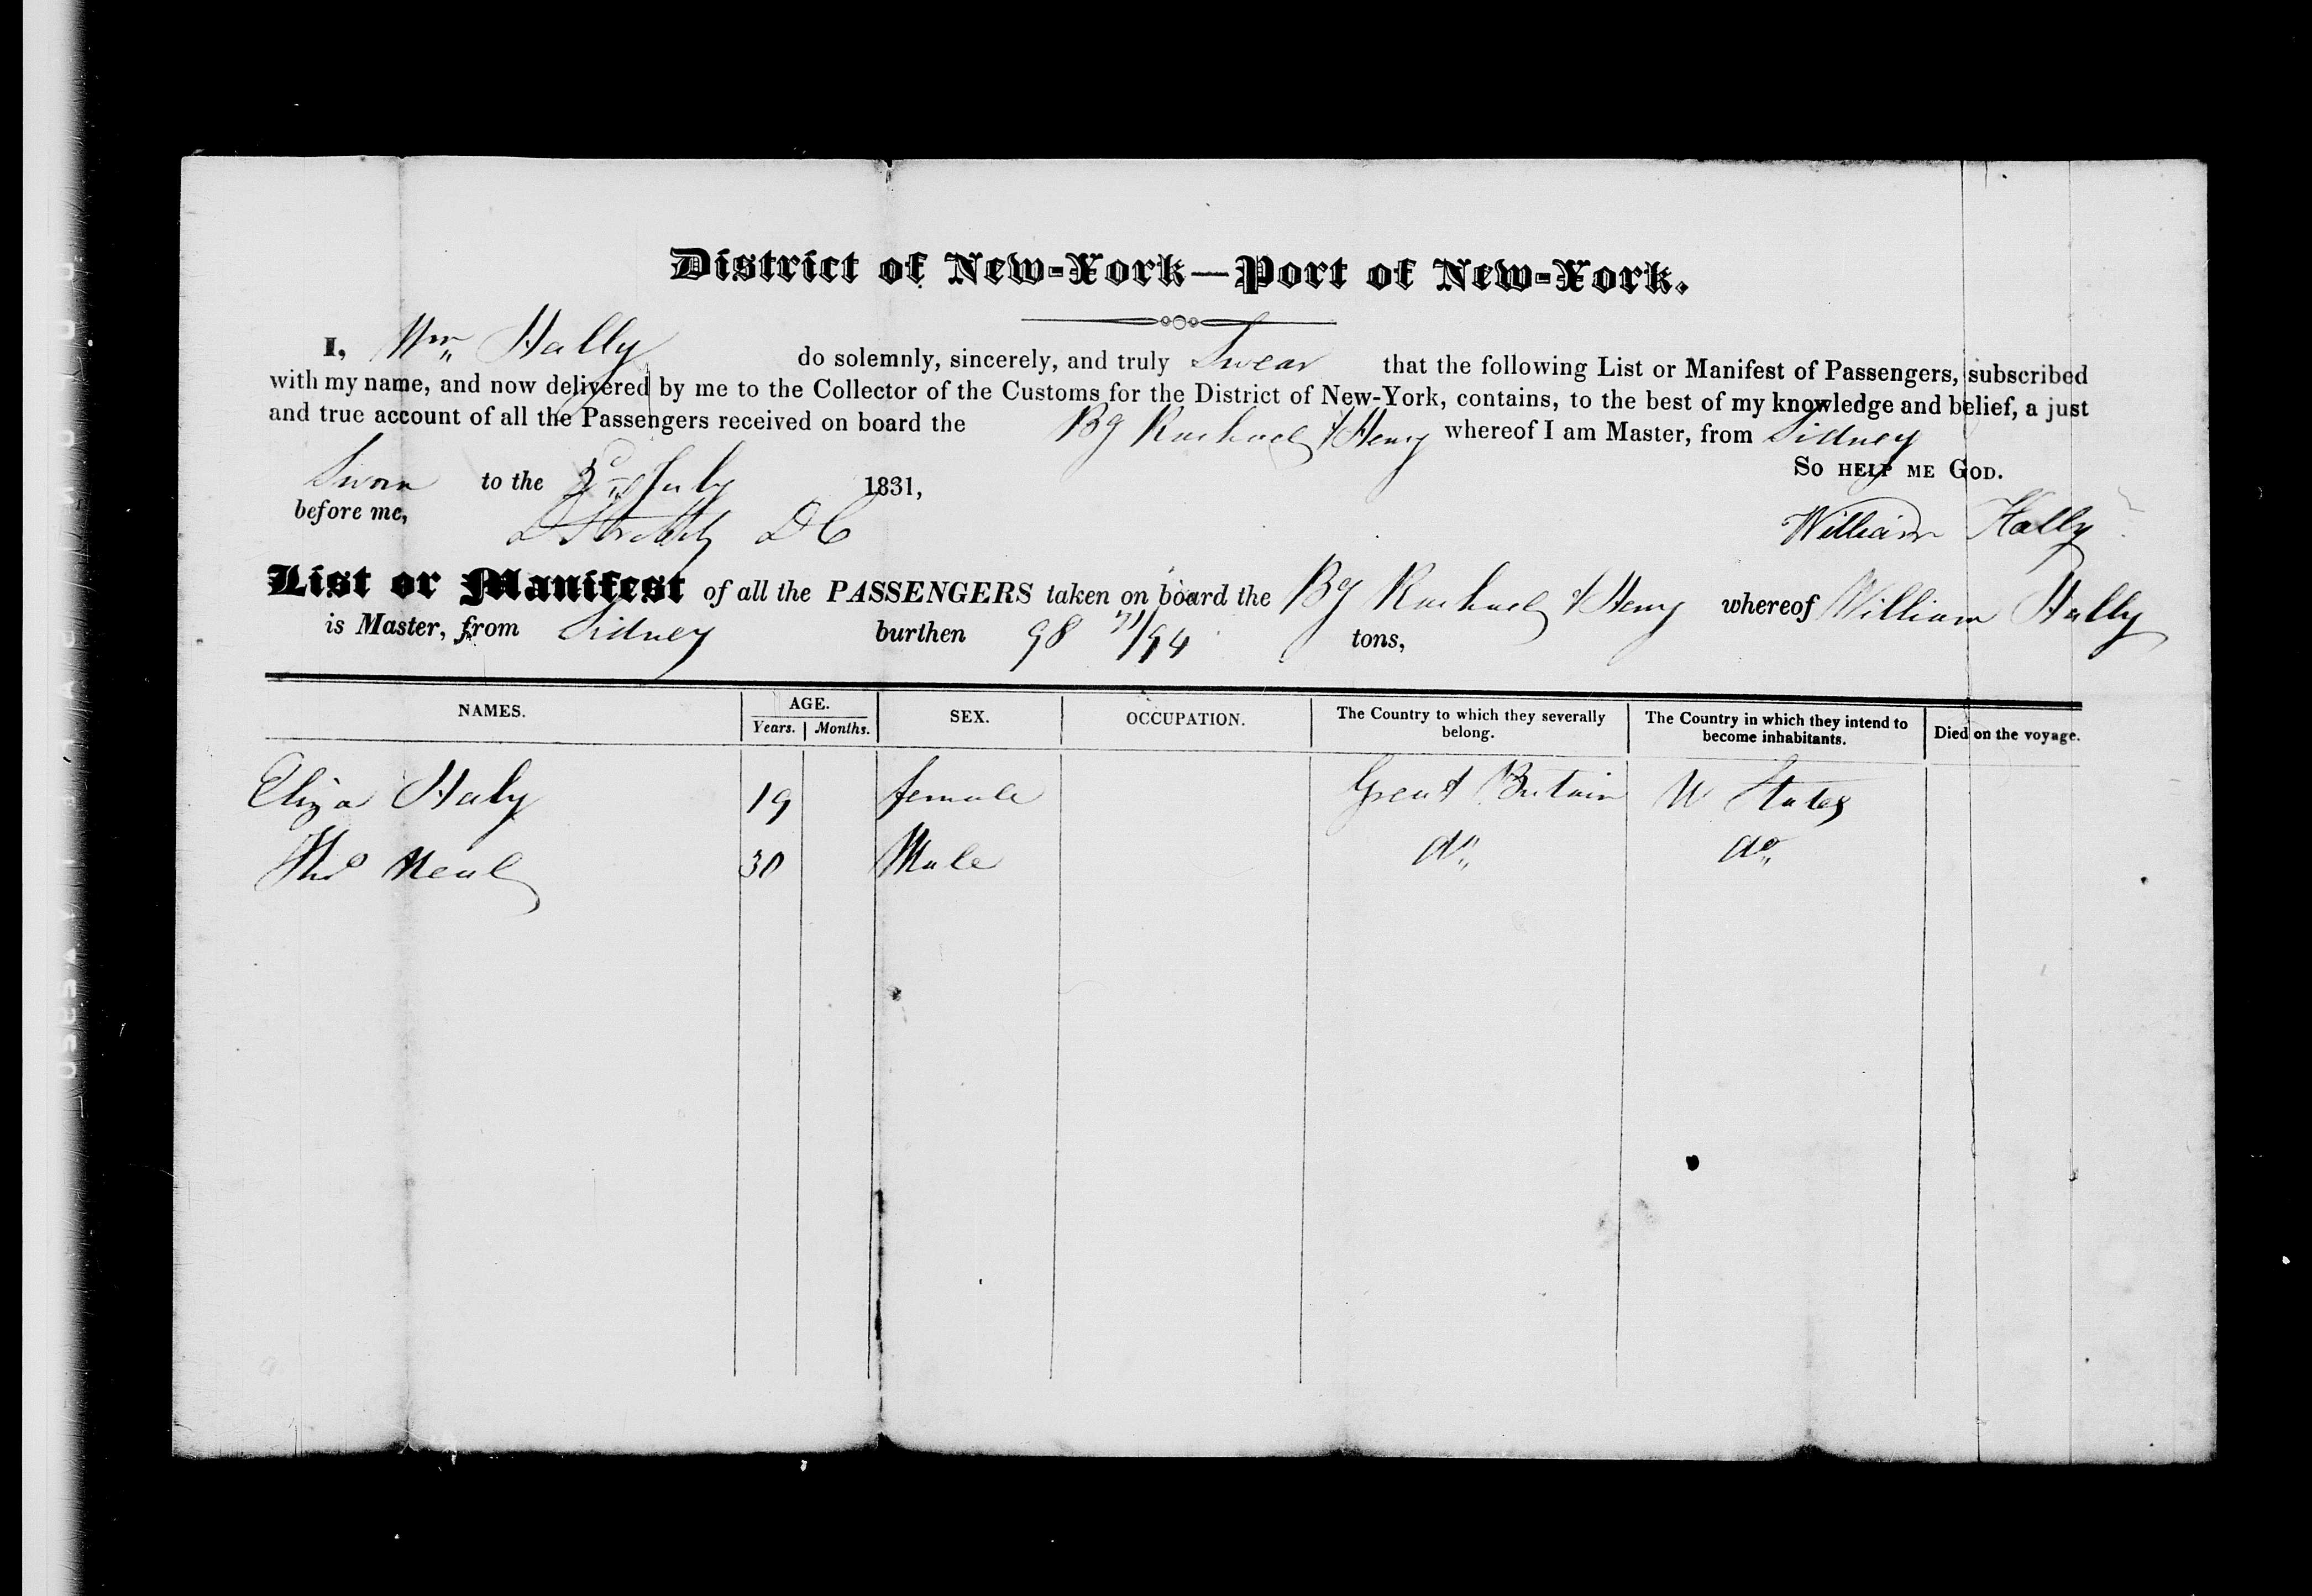 District of New-York—Port of New-York.
I, Wm Hally do solemnly, sincerely, and truly Swear that the following List or Manifest of Passengers, subscribed
with my name, and now delivered by me to the Collector of the Customs for the District of New-York, contains, to the best of my knowledge and belief, a just
and true account of all the Passengers received on board the Bg Rachael & Henry whereof I am Master, from Sidney
So help me God.
Sworn to the July 1831,
before me, D C
William Hally
List or Manifest of all the PASSENGERS taken on board the Bg Rachael & Henry whereof William Hally
is Master, from Sidney burthen 98 71/94 tons,
NAMES. AGE. Years. Months. SEX. OCCUPATION. The Country to which they severally belong. The Country in which they intend to become inhabitants. Died on the voyage.
Eliza Haly 19 female Great Britain U States
Thos Neal 30 Male do do